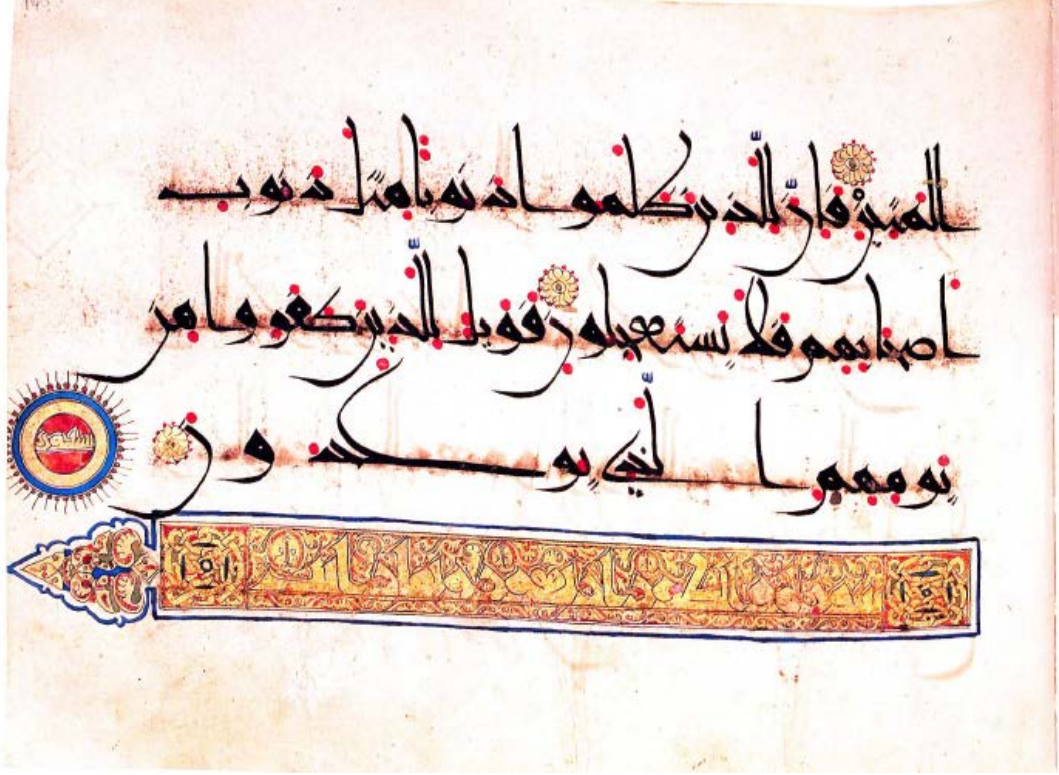 المتين فإنّ للّذين ظلموا ذنوبا مثل ذنوب
اصحابهم فلا يستعجلون فويل للّذين كفروا من
يومهم الّذي يوعدون